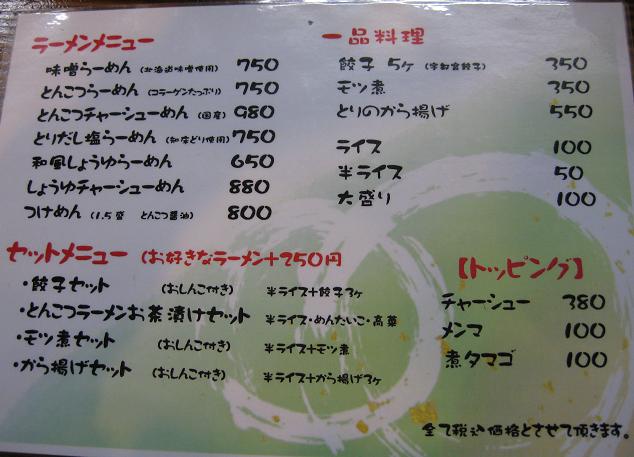 ラーメンメニュー
味噌らーめん (北海道味噌使用) 750
とんこつらーめん (コラーゲンたっぷり) 750
とんこつチャーシューめん (国産) 980
とりだし塩らーめん (知床どり使用) 750
和風しょうゆらーめん 650
しょうゆチャーシューめん 880
つけめん (1.5盛 とんこつ醤油) 800
一品料理
餃子 5ヶ (宇都宮餃子) 350
モツ煮 350
とりのから揚げ 550
ライス 100
半ライス 50
大盛り 100
セットメニュー (お好きなラーメン+250円
・餃子セット (おしんこ付き) 半ライス+餃子3ヶ
・とんこつラーメンお茶漬けセット 半ライス・めんたいこ・高菜
・モツ煮セット (おしんこ付き) 半ライス+モツ煮
・から揚げセット (おしんこ付き) 半ライス+から揚げ3ヶ
【トッピング】
チャーシュー 380
メンマ 100
煮タマゴ 100
全て税込価格とさせて頂きます。